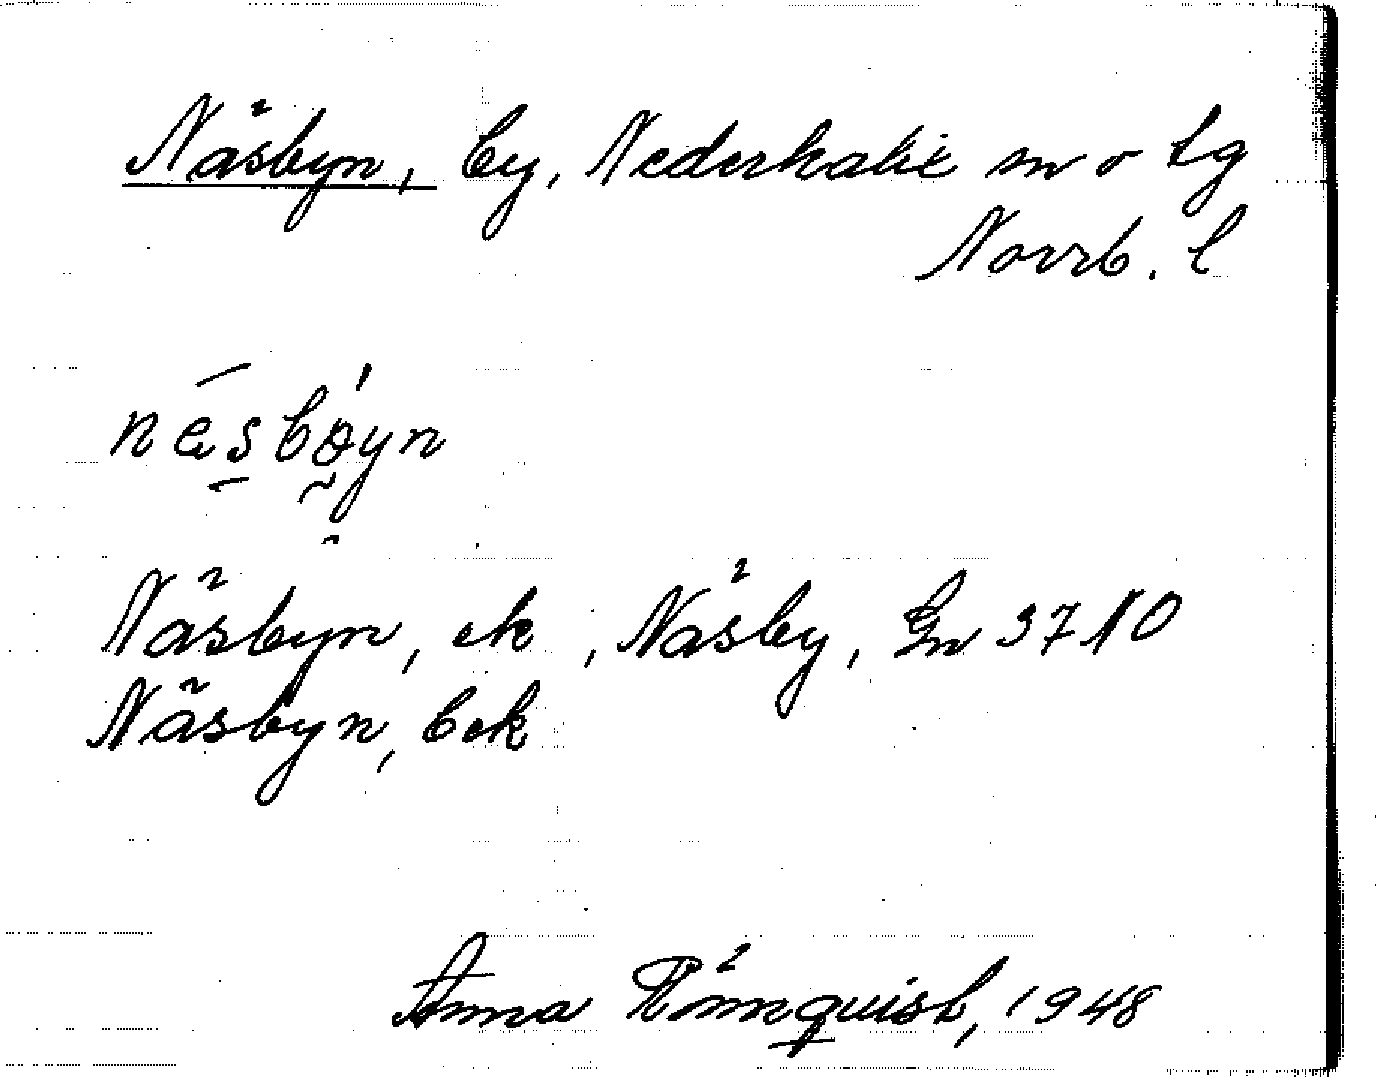 Näsbyn, by, Nederkalix sn o tg
Norrb. l
näsbøyn
Näsbyn, ek, Näsby, Gn 37 NO
Näsbyn, bek
Anna Rönnquist, 1948